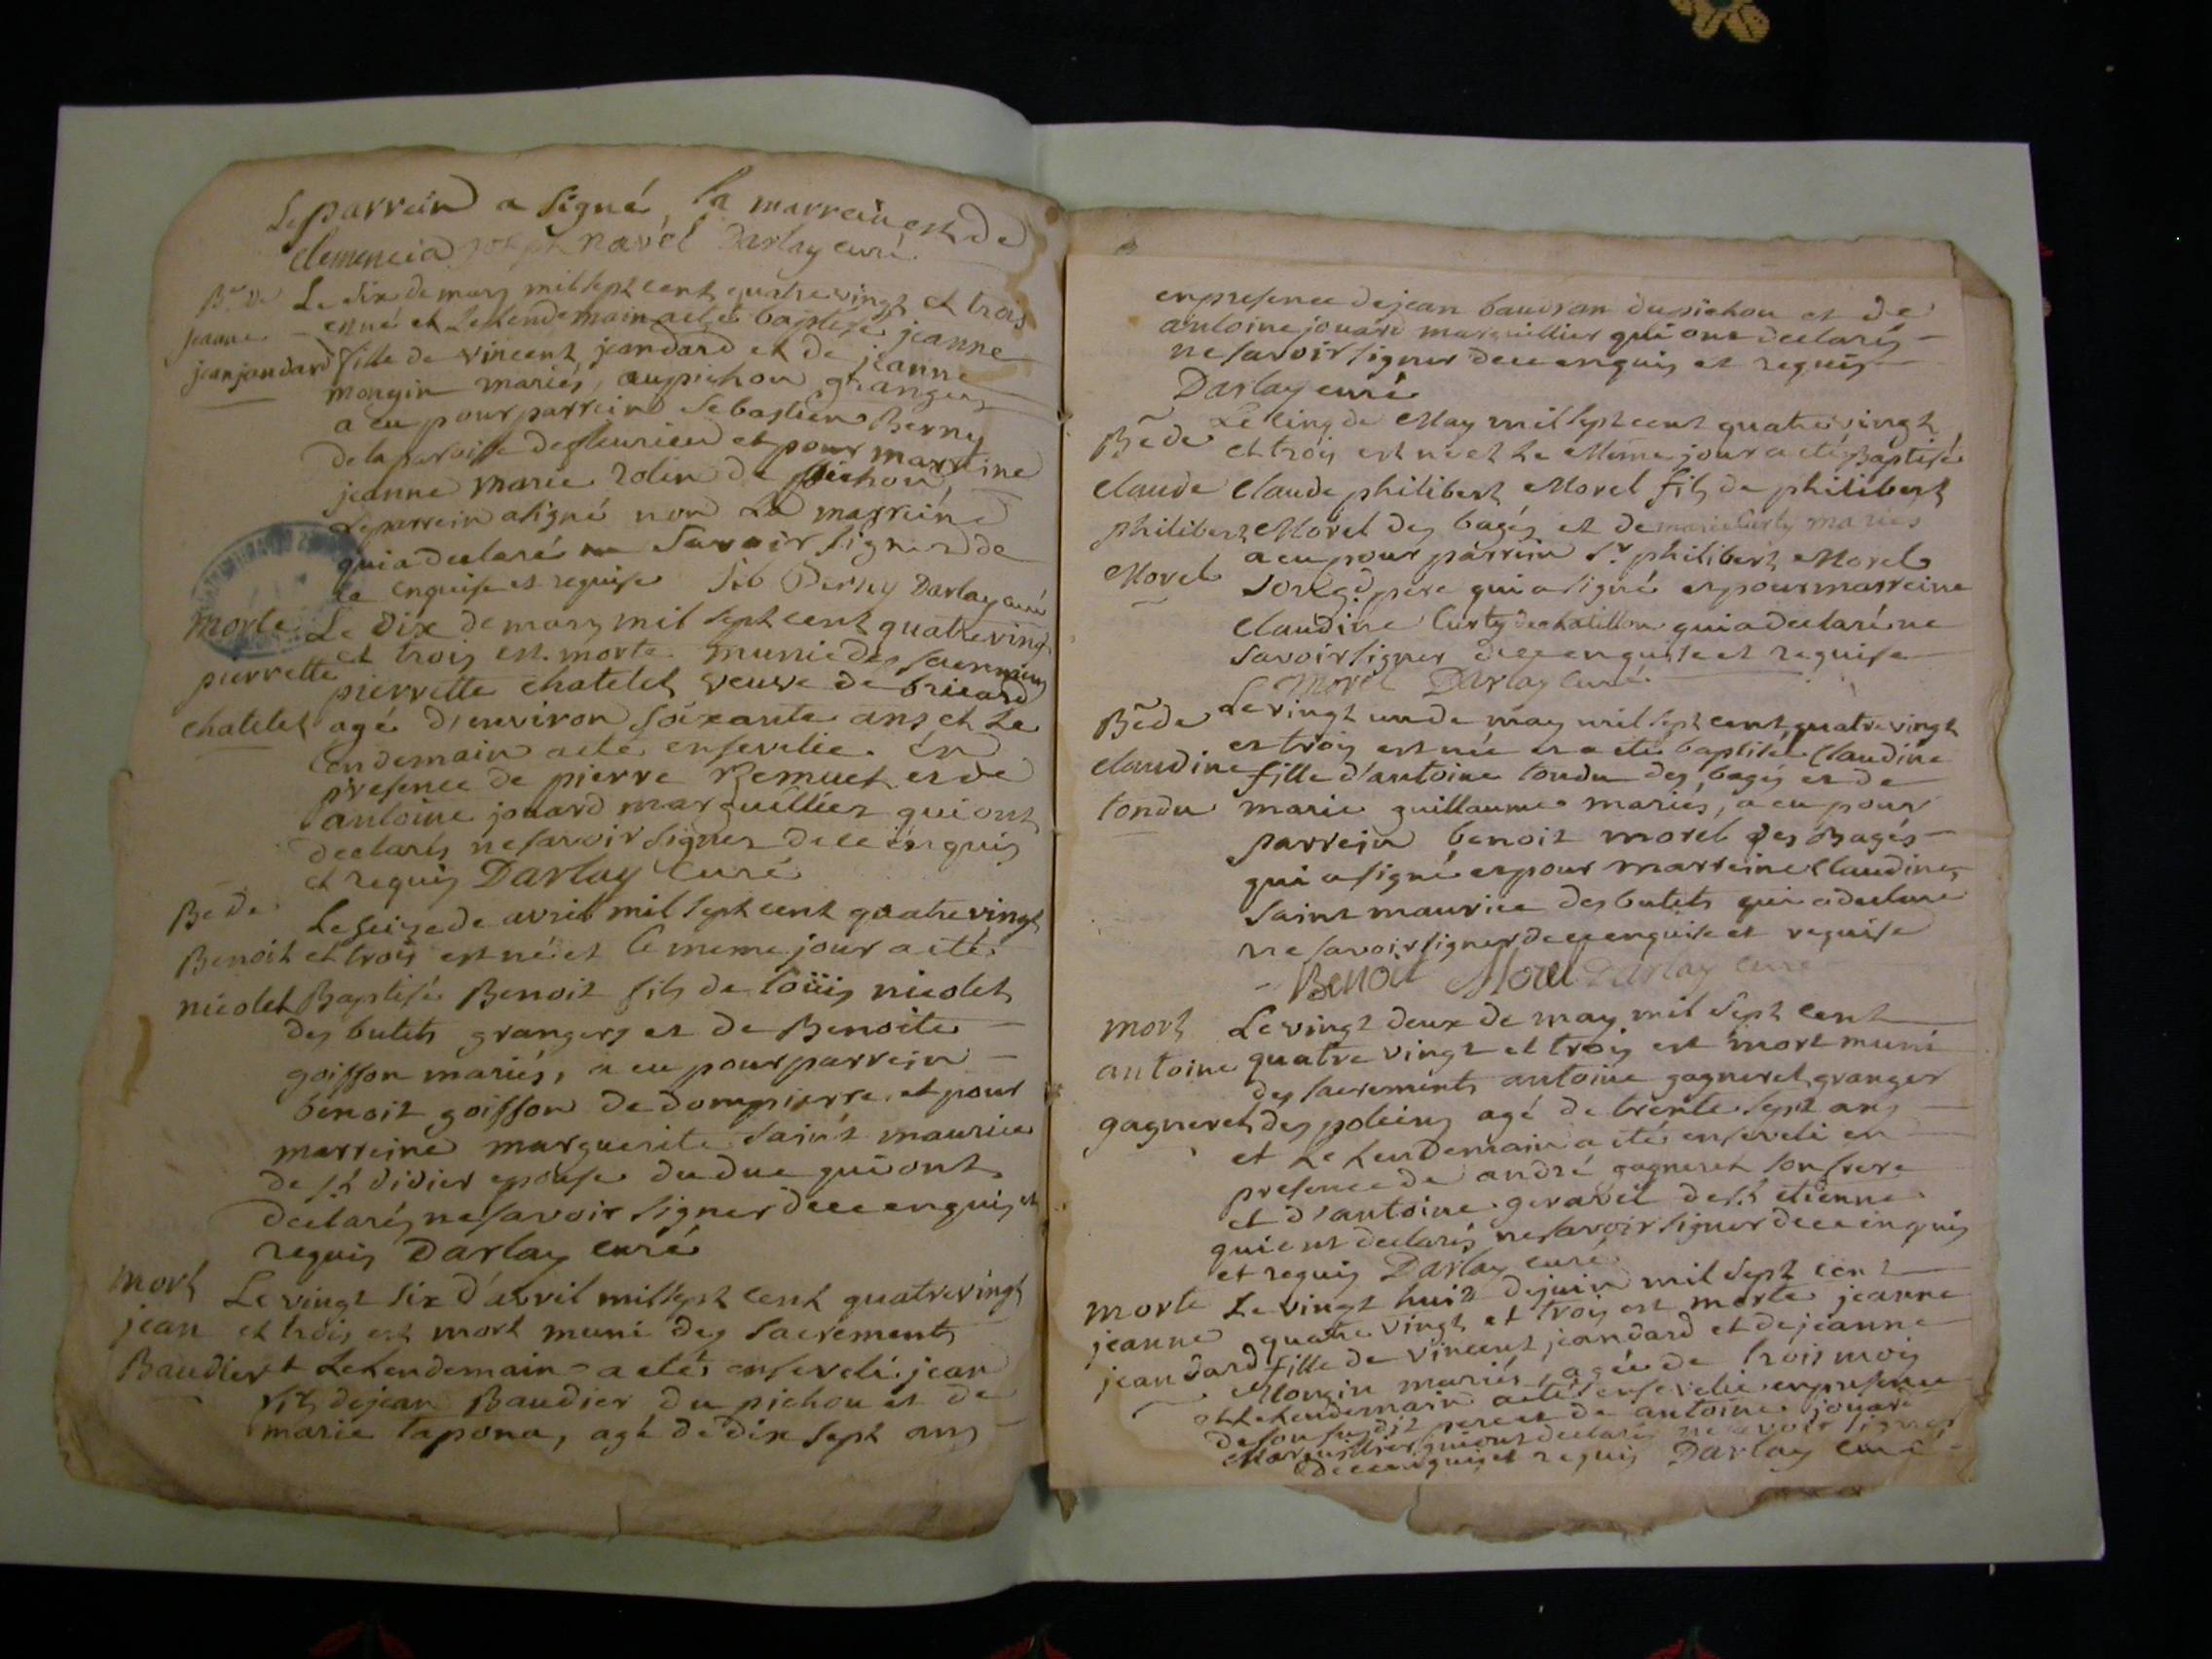 Le parrein a signé, la marreine est de
clemencia joseph navel Darlay curé
Bme de Le six de mars mil sept cent quatre vingt et trois
jeanne est né et le lendemain a eté baptisé jeanne
jeanjandard fille de vincent jeandard et de jeanne
mongin mariés, au pichou grangers
a eu pour parrein Sebastien Berny
de la paroisse de fleurieu et pour marreine
jeanne marie rolin de pichou
Le parrein a signé non La marreine
qui a declaré ne Savoir signer de
ce enquise et requise Seb Berny Darlay curé
Morte Le dix de mars mil sept cent quatre vingt
et trois est morte munie des sacremens
pierrette pierrette chatelet veuve de bricard
chatelet agé d'environ soixante ans et Le
lendemain a eté ensevelie en
presence de pierre Remuet et de
antoine jouard marguillier qui ont
declarés ne savoir signer de ce enquis
et requis Darlay curé
Bê de Le seize de avril mil sept cent quatre vingt
Benoit et trois est né et le meme jour a eté
nicolet Baptisé Benoit fils de loüis nicolet
des butets grangers et de Benoite
goiffon mariés, a eu pour parrein
benoit goiffon de dompierre et pour
marreine marguerite saint maurice
de st didier epouse du duc qui ont
declarés ne savoir signer de ce enquis et
requis Darlay curé
mort Le vingt six d'avril mil sept cent quatre vingt
jean et trois est mort muni des sacrements
Baudier et Le Lendemain a eté enseveli jean
fils de jean Baudier du pichou et de
marie lapona, agé de dix sept ans
en presence de jean baudran du pichou et de
antoine jouard marguillier qui ont declarés
ne savoir signer de ce enquis et requis
Darlay curé
Le cinq de May mil sept cent quatre vingt
Bê de et trois est né et Le Même jour a eté Baptisé
Claude Claude philibert Morel fils de philibert
philibert Morel des bagés et de marie Curty mariés
a eu pour parrein Sr philibert Morel
Morel son gd pere qui a signé et pour marreine
Claudine Curty de chatillon qui a declaré ne
savoir signer de ce enquise et requise
Le Morel Darlay Curé
Bê de Le vingt un de may mil sept cent quatre vingt
et trois est née et a eté baptisé Claudine
claudine fille d'antoine tondu des bagés et de
tondu marie guillaume mariés, a eu pour
parrein benoit morel des Bagés
qui a signé et pour marreine Claudine
Saint maurice des butets qui a declaré
ne savoir signer de ce enquise et requise
Benoit Morel Darlay curé
mort Le vingt deux de may mil sept cent
antoine quatre vingt et trois est mort muni
des sacrements antoine gagneret granger
gagneret des poleins agé de trente sept ans
et Le Lendemain a eté enseveli en
presence de andré gagneret son frere
et d'antoine geravel de st etienne
qui ont declarés ne savoir signer de ce enquis
et requis Darlay curé
morte Le vingt huit de juin mil sept cent
jeanne quatre vingt et trois est morte jeanne
jeandard fille de vincent jeandard et de jeanne
Mongin mariés, agée de trois mois
et Le Lendemain a eté ensevelie en presence
de son susdit pere et de antoine jouard
Marguillier qui ont declarés ne savoir signer
de ce enquis et requis Darlay curé